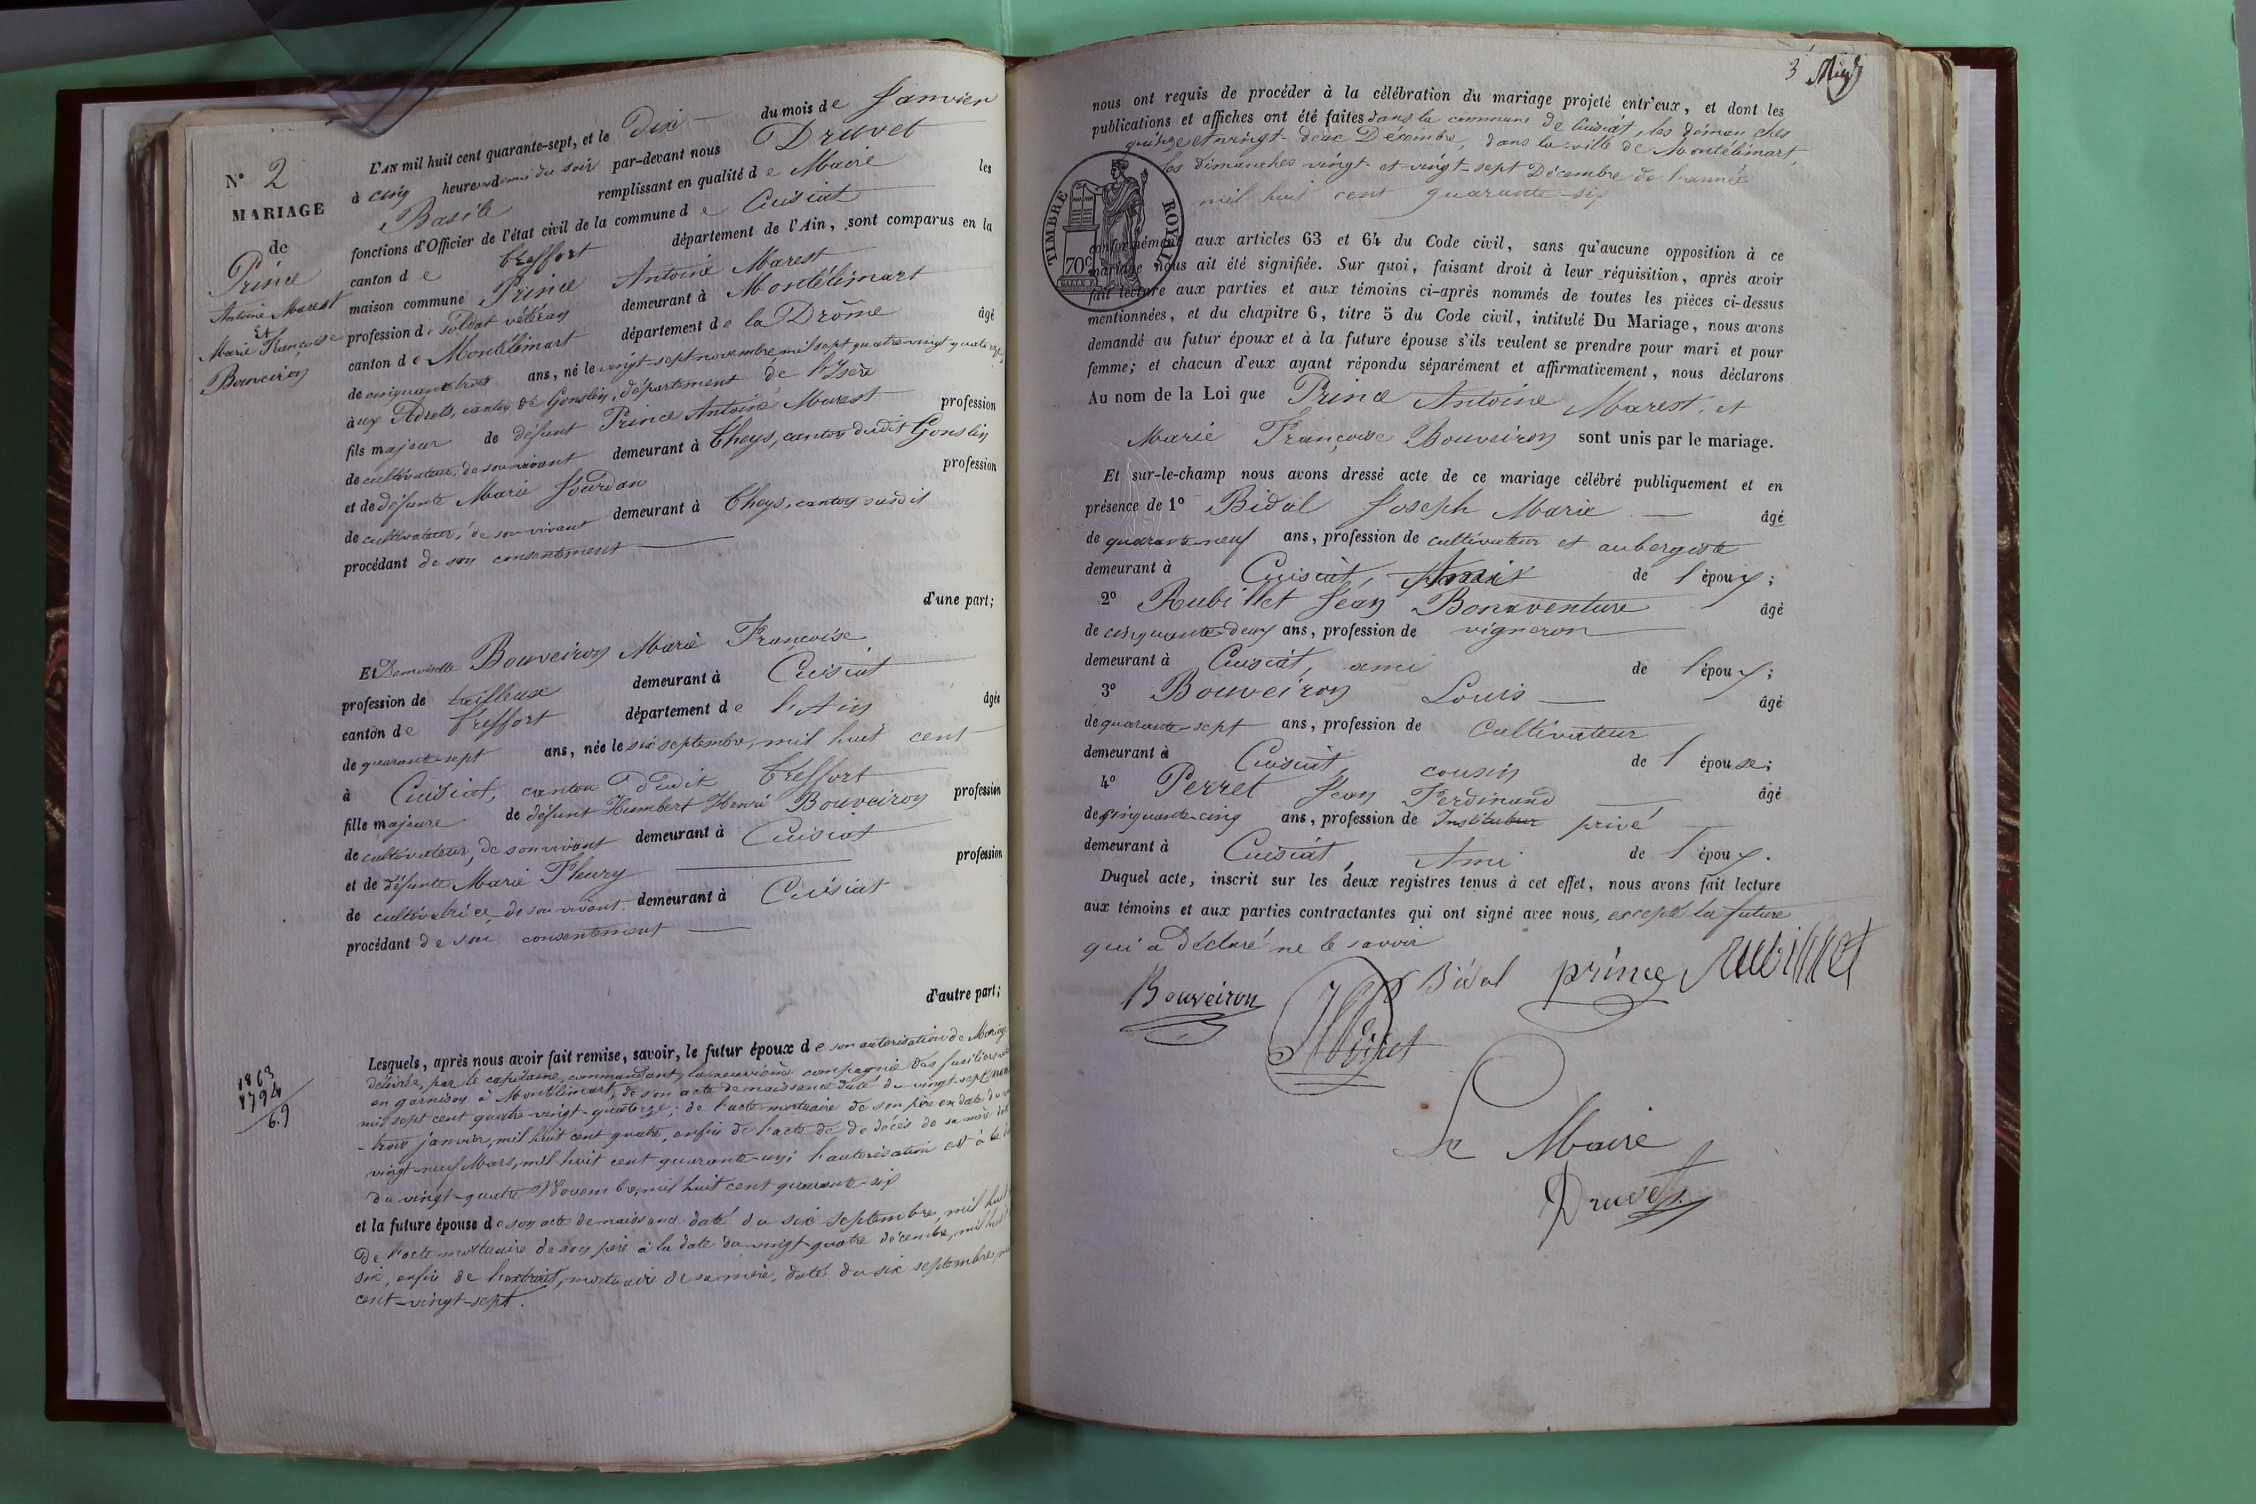 N° 2
MARIAGE
de
Prince
Antoine Marest
Et
Marie Françoise
Bouveiron
L'AN mil huit cent quarante-sept, et le Dix du mois de Janvier
à cinq heures du soir par-devant nous Druvet
Basile remplissant en qualité de Maire les
fonctions d'Officier de l'état civil de la commune de Cuisiat
canton de Treffort département de l'Ain, sont comparus en la
maison commune Prince Antoine Marest
profession de Soldat vétéran demeurant à Montélimart
canton de Montélimart département de la Drôme âgé
de cinquante trois ans, né le vingt-sept novembre mil sept quatre vingt quatorze
à ux Adrets, canton de Gonslin, département de l'Isère
fils majeur de défunt Prince Antoine Marest profession
de cultivateur, de son vivant demeurant à Theys, canton dudit Gonslin
et de défunte Marie Jourdan profession
de cultivateur, de son vivant demeurant à Theys, canton susdit
procédant de son consentement
d'une part;
Et Demoiselle Bouveiron Marie Françoise
profession de tailleuse demeurant à Cuisiat
canton de Treffort département de l'Ain âgée
de quarante-sept ans, née le six septembre, mil huit cent
à Cuisiat, canton dudit Treffort
fille majeure de défunt Humbert Henri Bouveiron profession
de cultivateur, de son vivant demeurant à Cuisiat
et de défunte Marie Fleury profession
de cultivatrice, de son vivant demeurant à Cuisiat
procédant de son consentement
d'autre part;
1863
1794
69
Lesquels, après nous avoir fait remise, savoir, le futur époux de son autorisation de Mariage
délivrée, par le capitaine, commandant, la neuvième compagnie des fusiliers
en garnison à Montélimart, de son acte de naissance daté du vingt-sept
mil sept cent quatre-vingt-quatorze; de l'acte mortuaire de son père en date du
-trois janvier, mil huit cent quatre, enfin de l'acte de de décès de sa mère
vingt-neuf Mars, mil huit cent quarante-un; l'autorisation est à la
du vingt-quatre Novembre, mil huit cent quarante-six
et la future épouse de son acte de naissance daté du six septembre, mil huit
De l'acte mortuaire de son père à la date du vingt-quatre décembre, mil huit
six, enfin de l'extrait, mortuaire de sa mère, daté du six septembre,
cent-vingt-sept.
3
nous ont requis de procéder à la célébration du mariage projeté entr'eux, et dont les
publications et affiches ont été faites dans la commune de Cuisiat, les dimanches
quinze et vingt-deux Décembre, dans la ville de Montélimart,
les dimanches vingt et vingt-sept Décembre de l'année
mil huit cent quarante-six
TIMBRE ROYAL
70c
conformément aux articles 63 et 64 du Code civil, sans qu'aucune opposition à ce
mariage nous ait été signifiée. Sur quoi, faisant droit à leur réquisition, après avoir
fait lecture aux parties et aux témoins ci-après nommés de toutes les pièces ci-dessus
mentionnées, et du chapitre 6, titre 5 du Code civil, intitulé Du Mariage, nous avons
demandé au futur époux et à la future épouse s'ils veulent se prendre pour mari et pour
femme; et chacun d'eux ayant répondu séparément et affirmativement, nous déclarons
Au nom de la Loi que Prince Antoine Marest, et
Marie Françoise Bouveiron sont unis par le mariage.
Et sur-le-champ nous avons dressé acte de ce mariage célébré publiquement et en
présence de 1° Bidal Joseph Marie âgé
de quarante-neuf ans, profession de cultivateur et aubergiste
demeurant à Cuisiat, Ami de l'époux;
2° Rubillet Jean Bonaventure âgé
de cinquante-deux ans, profession de vigneron
demeurant à Cuisiat, ami de l'époux;
3° Bouveiron Louis âgé
de quarante-sept ans, profession de Cultivateur
demeurant à Cuisiat cousin de l'épouse;
4° Perret Jean Ferdinand âgé
de cinquante-cinq ans, profession de Instituteur privé
demeurant à Cuisiat, Ami de l'époux.
Duquel acte, inscrit sur les deux registres tenus à cet effet, nous avons fait lecture
aux témoins et aux parties contractantes qui ont signé avec nous, excepté la future
qui a déclaré ne le savoir
Bouveiron Bidal prince Rubillet
Le Maire
Druvet